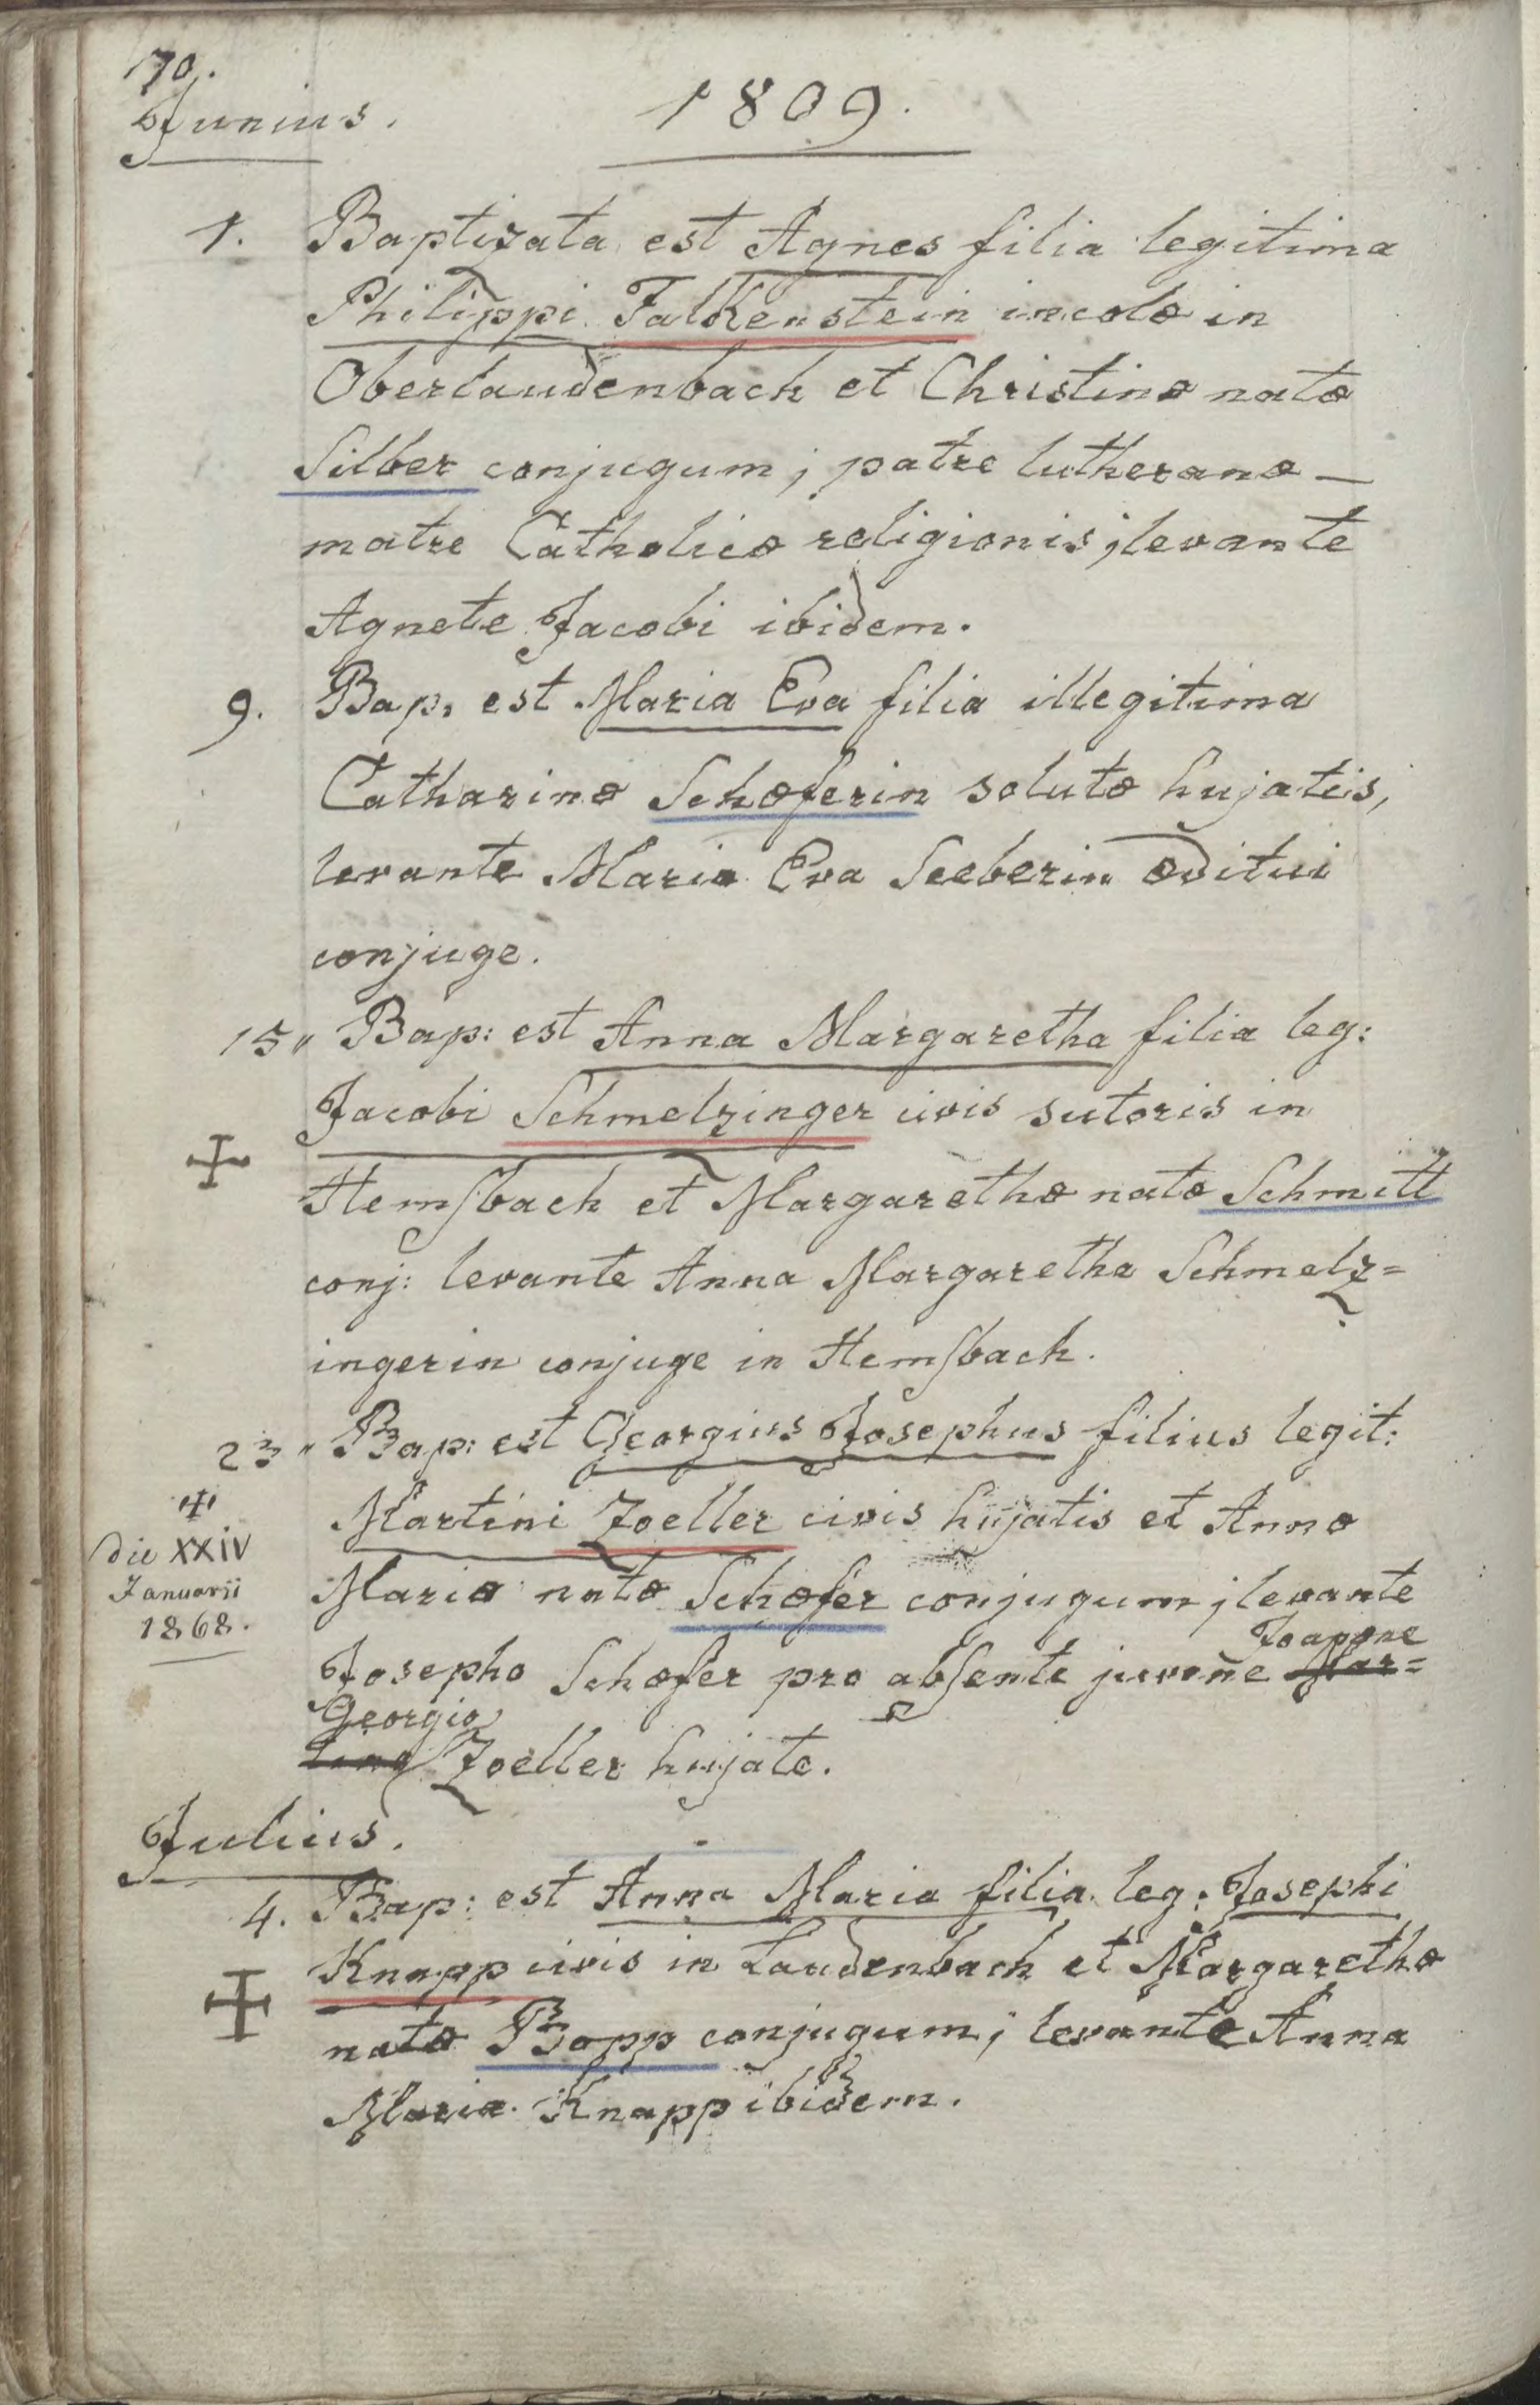 170.
Junius.
1809.
1. Baptizata est Agnes filia legitima
Philippi Falkenstein incolæ in
Oberlaudenbach et Christinæ natæ
Silber conjugum; patre lutheranæ —
matre Catholicæ religionis; levante
Agnete Jacobi ibidem.
9. Bap. est Maria Eva filia illegitima
Catharinæ Schæferin solutæ hujatis,
levante Maria Eva Seeberin æditui
conjuge.
15" Bap: est Anna Margaretha filia leg:
Jacobi Schmelzinger civis sutoris in
Hemſbach et Margarethæ natæ Schmitt
conj: levante Anna Margaretha Schmelz=
ingerin conjuge in Hemſbach.
23" Bap: est Georgius Josephus filius legit:
Martini Zoeller civis hujatis et Annæ
Mariæ natæ Schæfer conjugum; levante
Joanne
Josepho Schæfer pro abſente juvene Mar=
Georgio
tino Zoeller hujate.
die XXIV
Januarii
1868.
Julius.
4. Bap: est Anna Maria filia leg: Josephi
Knapp civis in Laudenbach et Margarethæ
natæ Bopp conjugum; levante Anna
Maria Knapp ibidem.